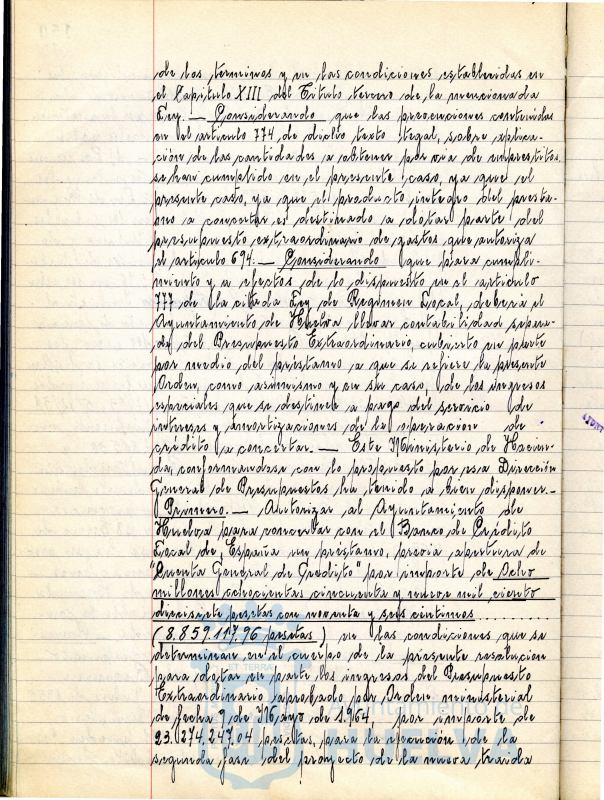 de los terminos y en las condiciones establecidas en
el Capitulo XIII del Titulo tercero de la mencionada
Ley. — Considerando que las prevenciones contenidas
en el articulo 774 de dicho texto legal, sobre aplica-
ción de las cantidades a obtener por via de emprestitos,
se han cumplido en el presente caso, ya que el
presente caso, ya que el producto integro del presta-
mo a concertar es destinado a dotar parte del
presupuesto extraordinario de gastos que autoriza
el articulo 694. — Considerando que para cumpli-
miento y a efectos de lo dispuesto en el articulo
777 de la citada Ley de Regimen Local, deberá el
Ayuntamiento de Huelva llevar contabilidad separa-
da del Presupuesto Extraordinario, cubierto en parte
por medio del prestamo a que se refiere la presente
Orden, como asimismo y en su caso, de los ingresos
especiales que se destinen a pago del servicio de
intereses y amortizaciones de la operacion de
crédito a concertar. — Este Ministerio de Hacien-
da, conformandose con lo propuesto por esa Dirección
General de Presupuestos ha tenido a bien disponer.-
Primero. — Autorizar al Ayuntamiento de
Huelva para concertar con el Banco de Crédito
Local de España un prestamo, previa apertura de
"Cuenta General de Credito" por importe de Ocho
millones ochocientas cincuenta y nueve mil ciento
diecisiete pesetas con noventa y seis centimos
(8.859.117,96 pesetas) en las condiciones que se
determinan en el cuerpo de la presente resolucion
para dotar en parte los ingresos del Presupuesto
Extraordinario aprobado por Orden ministerial
de fecha 9 de Mayo de 1.964, por importe de
23.274.247,04 pesetas, para la ejecución de la
segunda fase del proyecto de la nueva traida
Ayuntamiento de
HUELVA